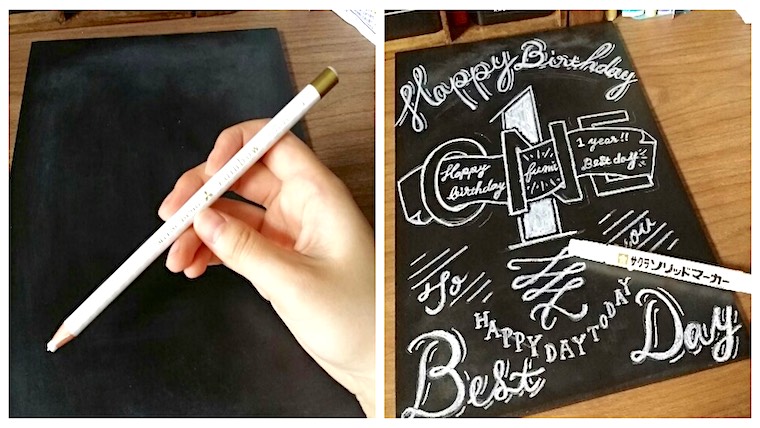 Happy Birthday
ONE
1
Happy birthday
fumi
1 year!!
Best day
To
you
サクラソリッドマーカー
HAPPY DAY TODAY
Best
Day